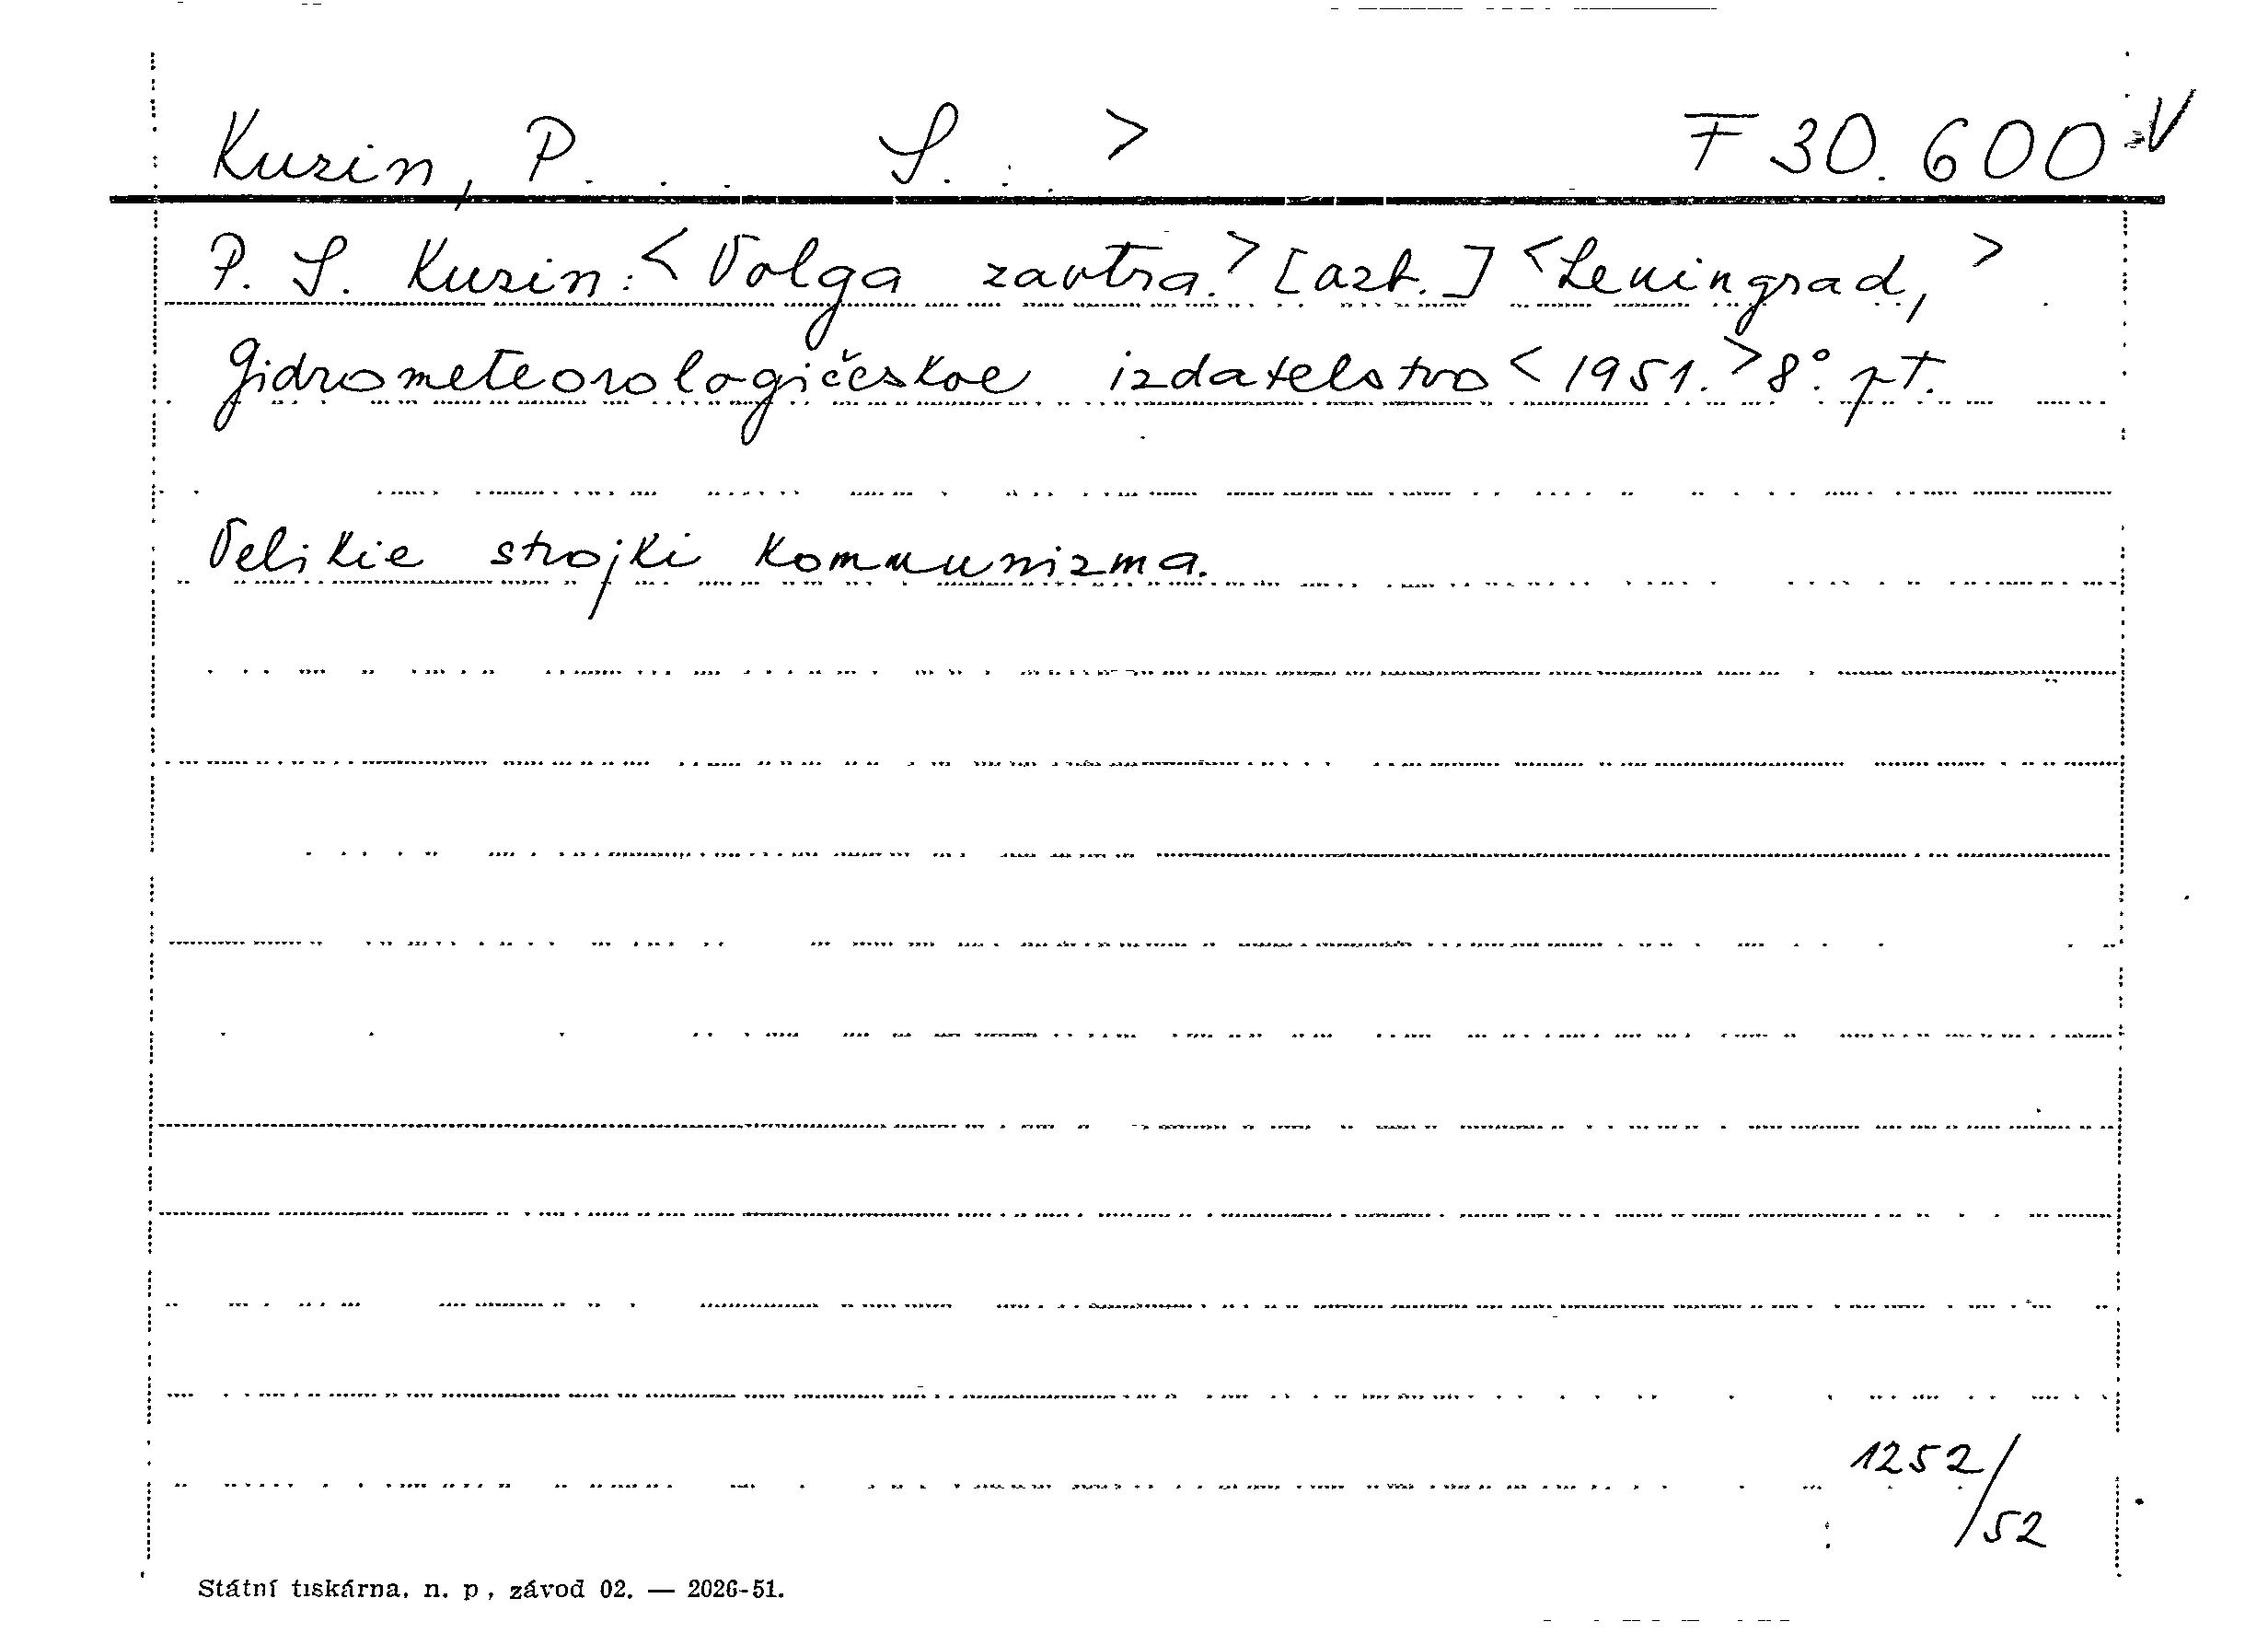 Kuzin, P. S. > F 30.600
P. S. Kuzin: < Volga zavtra. > [azb.] < Leningrad, >
Gidrometeorologičeskoe izdatelstvo < 1951. > 8°. pt.
Velikie strojki kommunizma.
1252/52
Státní tiskárna, n. p., závod 02. — 2026-51.